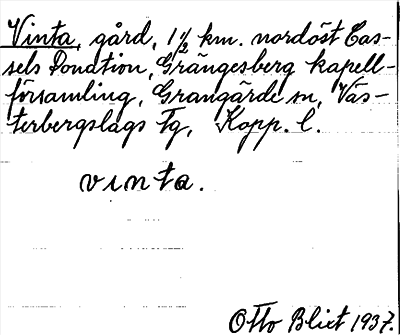 Vinta, gård, 1½ km. nordöst Cas-
sels Donation, Grängesberg kapell-
församling, Grangärde sn, Väs-
terbergslags Fg, Kopp. l.
vinta.
Otto Blixt 1937.